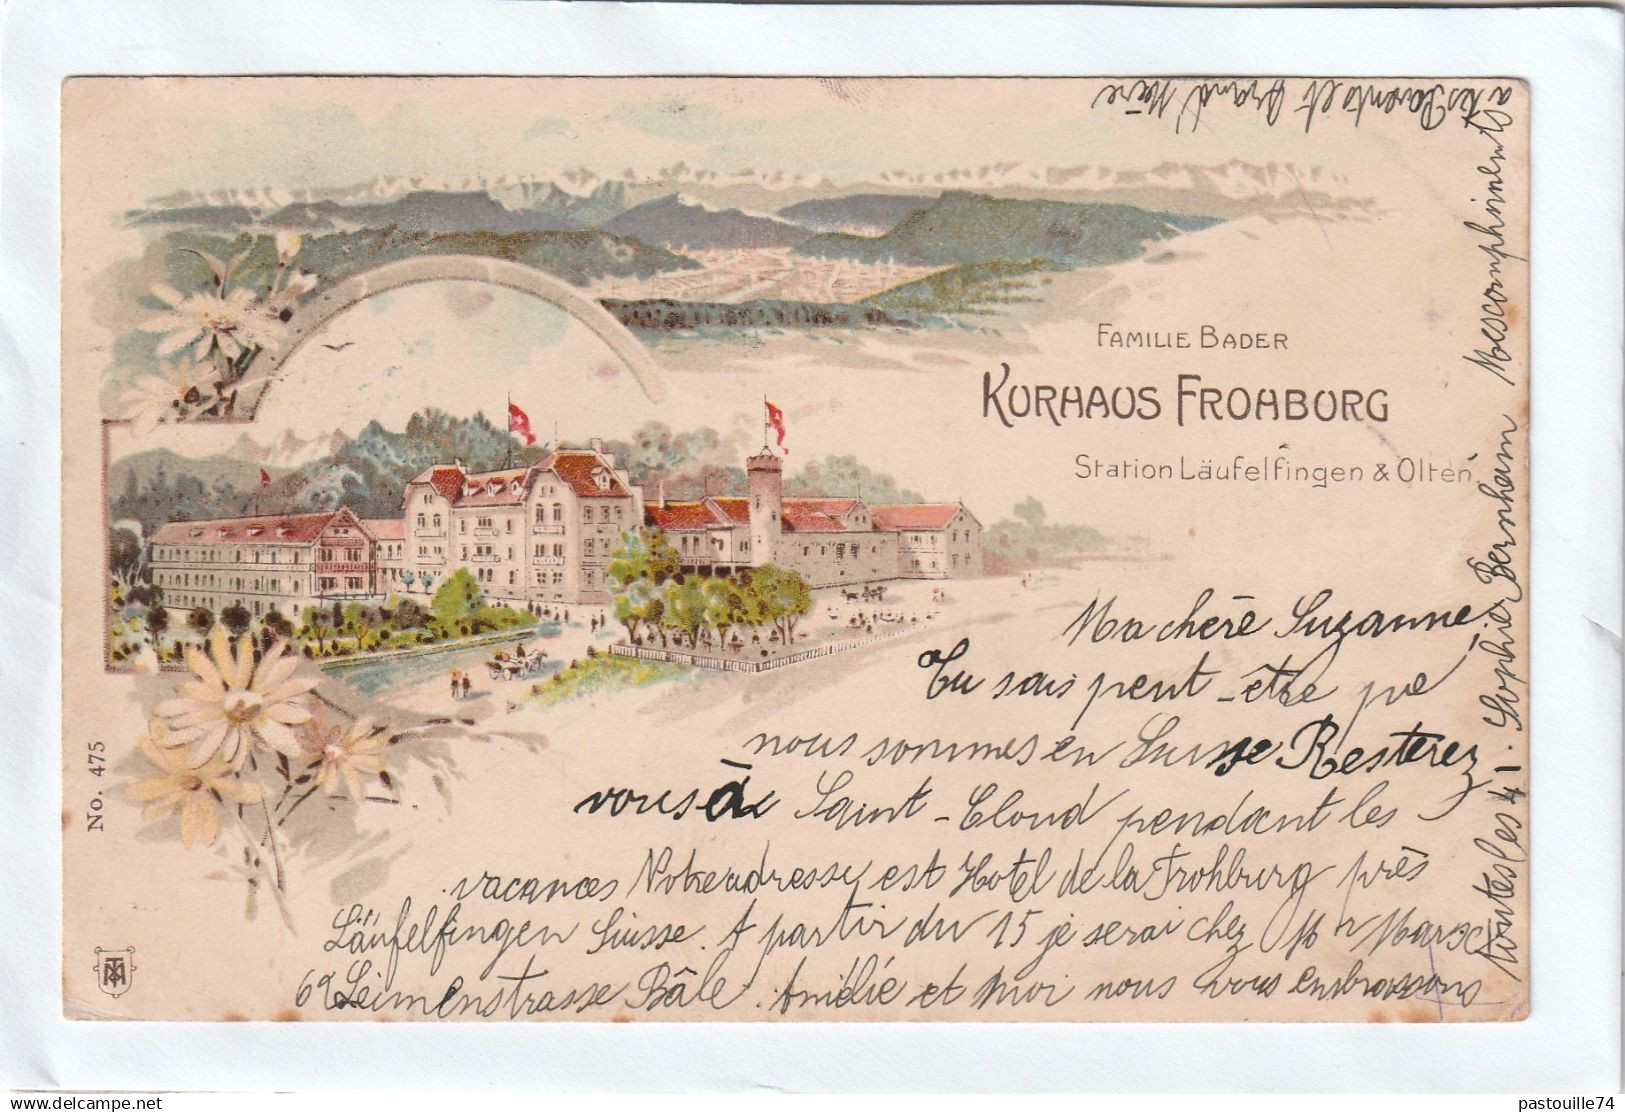 FAMILIE BADER
KURHAUS FROHBURG
Station Läufelfingen & Olten
No. 475
Ma chère Suzanne,
Tu sais peut-être que
nous sommes en Suisse Resterez
vous à Saint-Cloud pendant les
vacances Notre adresse est Hotel de la Frohburg près
Läufelfingen Suisse. A partir du 15 je serai chez Mr Marx
69 Leimenstrasse Bâle. Amélie et moi nous vous embrassons
toutes les 4. Sophie Bernheim Mes compliments
a tes Parents et Grand' Mère
pastouille74